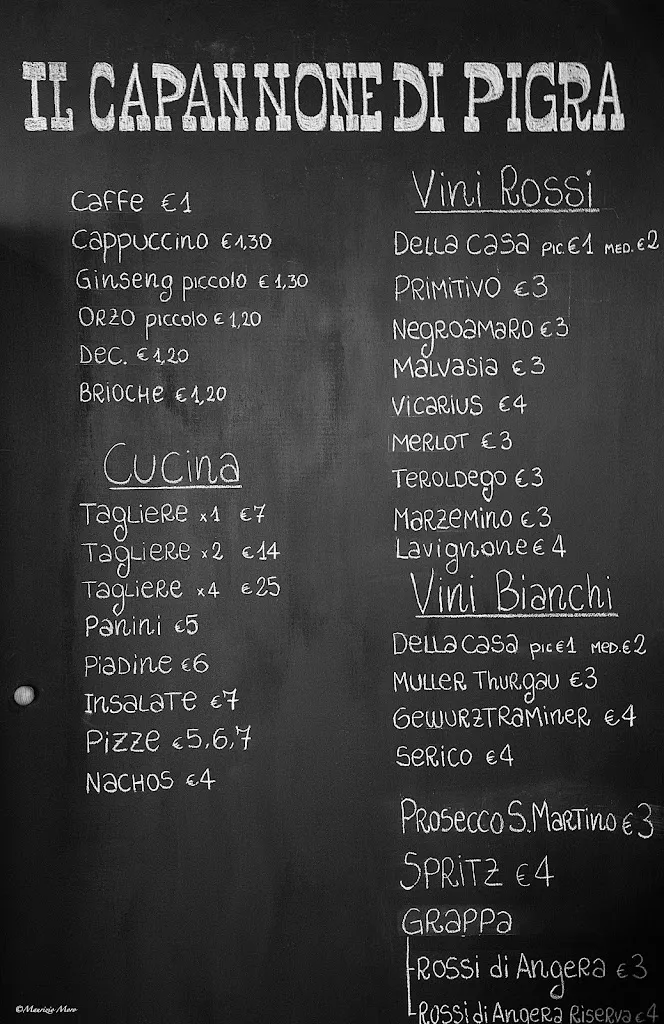 IL CAPANNONE DI PIGRA
Caffe €1
Cappuccino €1,30
Ginseng piccolo €1,30
Orzo piccolo €1,20
Dec. €1,20
Brioche €1,20
Cucina
Tagliere x1 €7
Tagliere x2 €14
Tagliere x4 €25
Panini €5
Piadine €6
Insalate €7
Pizze €5,6,7
Nachos €4
Vini Rossi
Della Casa pic.€1 med.€2
Primitivo €3
Negroamaro €3
Malvasia €3
Vicarius €4
Merlot €3
Teroldego €3
Marzemino €3
Lavignone €4
Vini Bianchi
Della Casa pic€1 med.€2
Muller Thurgau €3
Gewurztraminer €4
Serico €4
Prosecco S.Martino €3
Spritz €4
Grappa
Rossi di Angera €3
Rossi di Angera Riserva €4
©Maurizio Moro